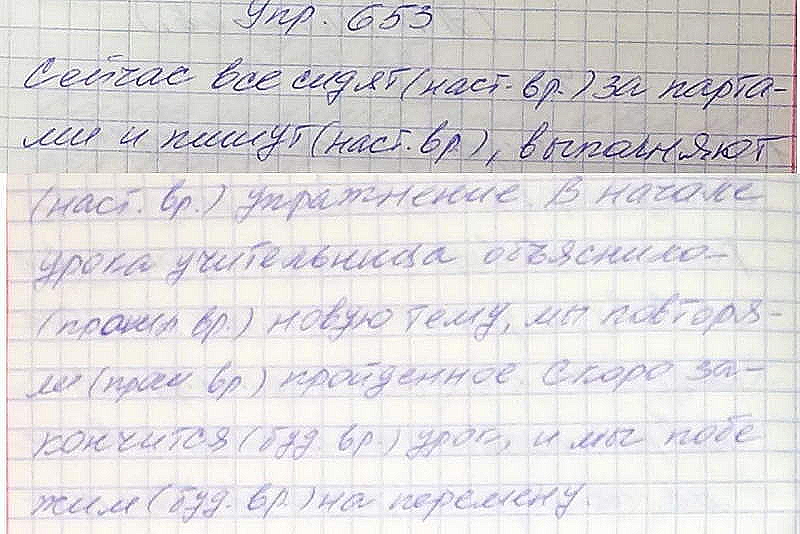 Упр. 653
Сейчас все сидят (наст. вр.) за парта-
ми и пишут (наст. вр), выполняют
(наст. вр.) упражнение. В начале
урока учительница объяснила
(прошл вр.) новую тему, мы повторя-
ли (прош вр) пройденное. Скоро за-
кончится (буд. вр.) урок, и мы побе
жим (буд. вр.) на перемену.